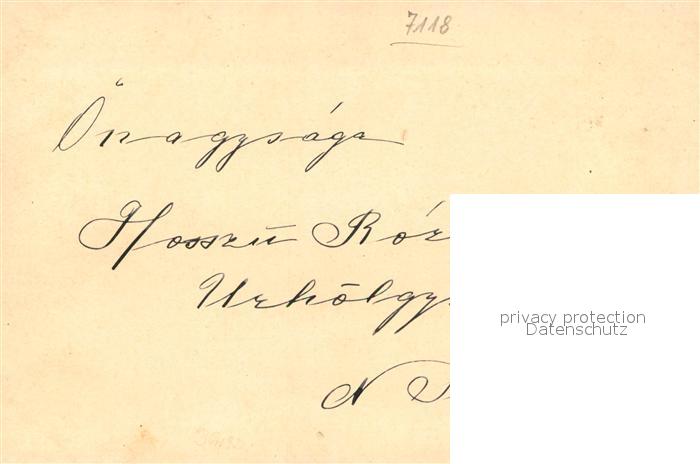 7118
Önagysága
Hosszú Róz
Urhölgy
N
privacy protection
Datenschutz